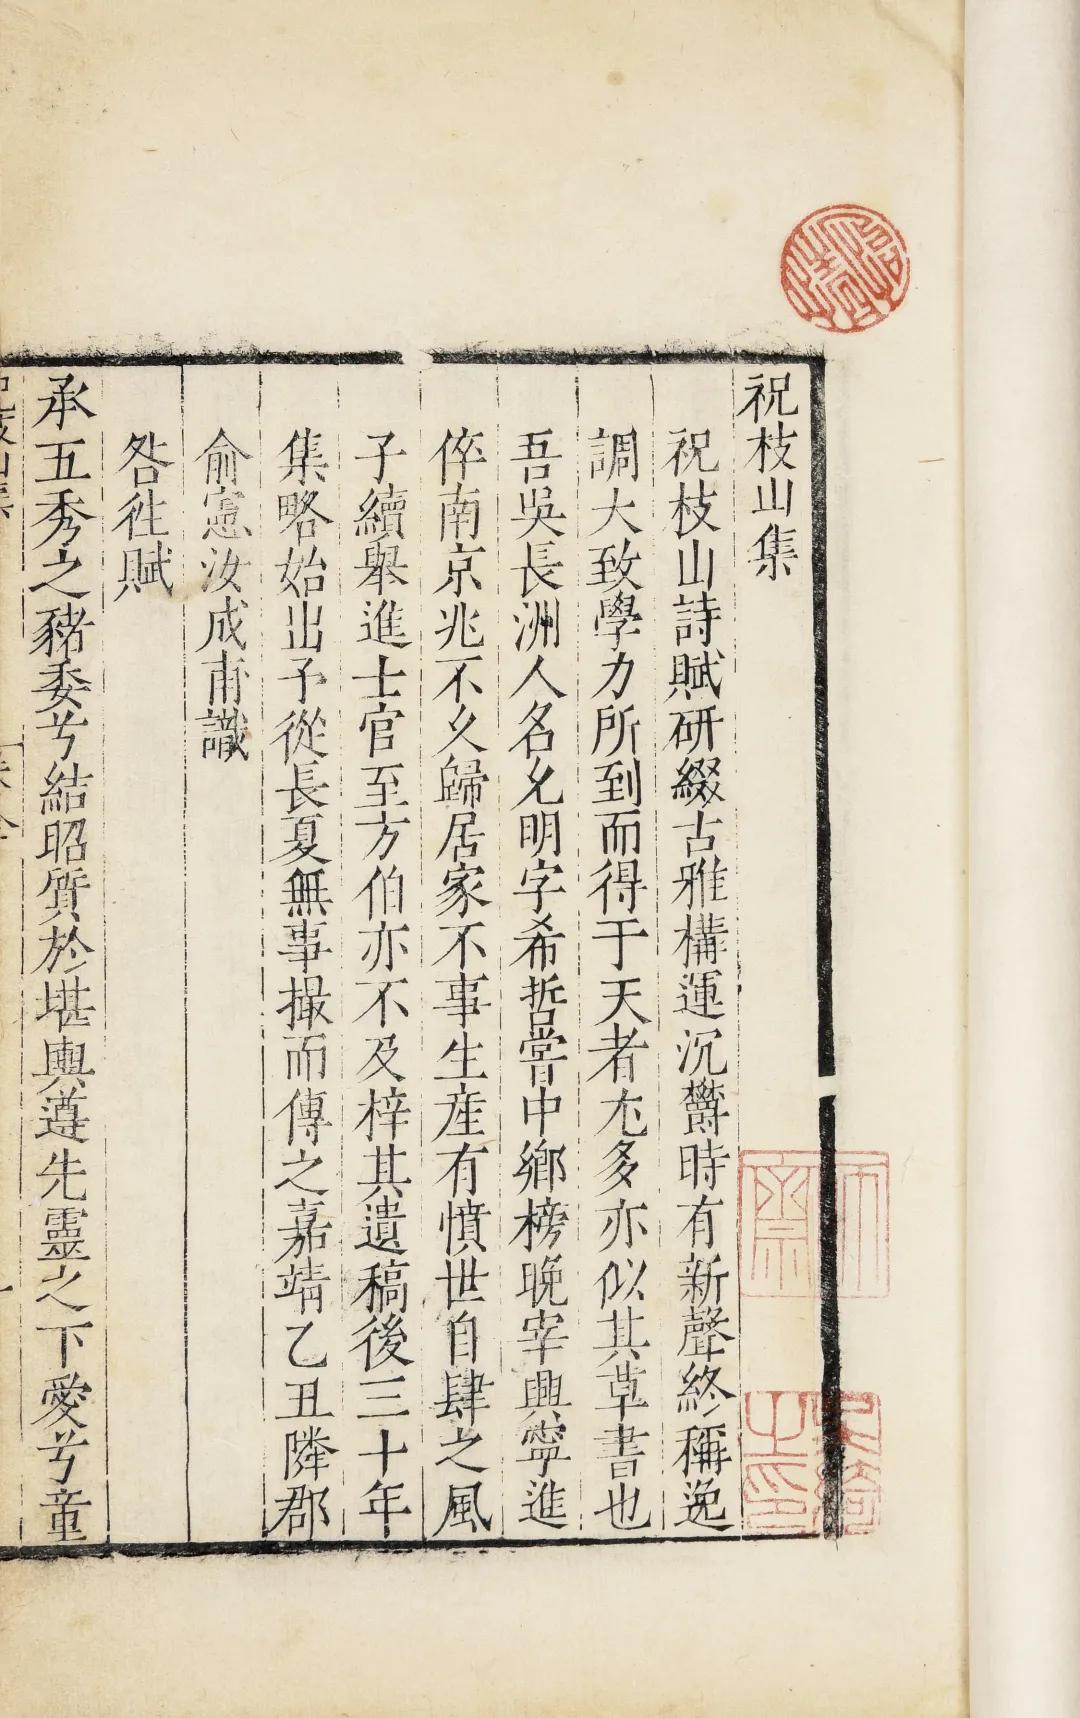 祝枝山集
祝枝山詩賦研綴古雅構運沉欝時有新聲終稱逸
調大致學力所到而得于天者尢多亦似其草書也
吾吳長洲人名允明字希哲嘗中鄉榜晚宰興寧進
倅南京兆不乆歸居家不事生産有憤世自肆之風
子續舉進士官至方伯亦不及梓其遺稿後三十年
集略始出予從長夏無事撮而傳之嘉靖乙丑隣郡
俞憲汝成甫識
咎徃賦
承五秀之豬委兮結昭質於堪輿遵先靈之下愛兮童